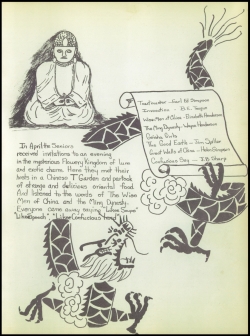 Toastmaster - Earl B. Simpson
Invocation - B. L. Sugin
Wise Men of China - Elizabeth Henderson
The Ming Dynasty - Wayne Henderson
Geisha Girls
The Good Earth - Tom
Great Walls of China - Helen Simpson
Confucius Say - J.B. Sharp
In April the Seniors
received invitations to an evening
in the mysterious Flowery Kingdom of lure
and exotic charm. Here they met their
hosts in a Chinese T Garden and partook
of strange and delicious oriental food
And listened to the words of The Wise
Men of China and the Ming Dynasty.
Everyone came away saying
"Whoe Speech". "I Likee Confucious